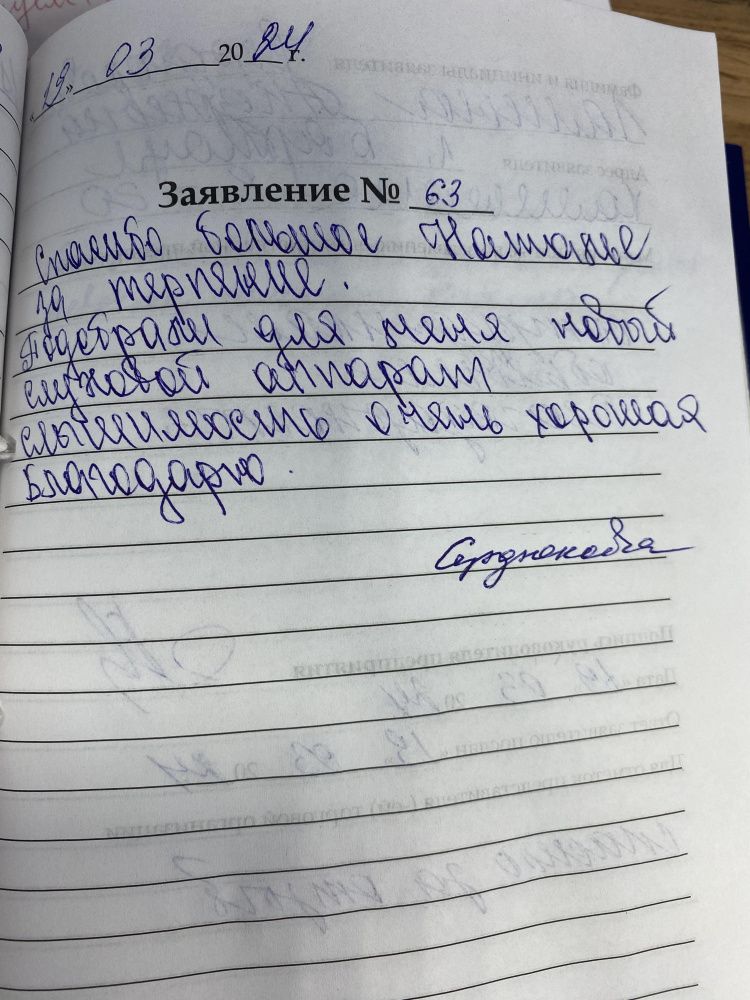 „19" 03 2024 г.
Заявление № 63
Спасибо большое Наталье
за терпение.
Подобрали для меня новый
слуховой аппарат
слышимость очень хорошая
Благодарю.
Сердюкова